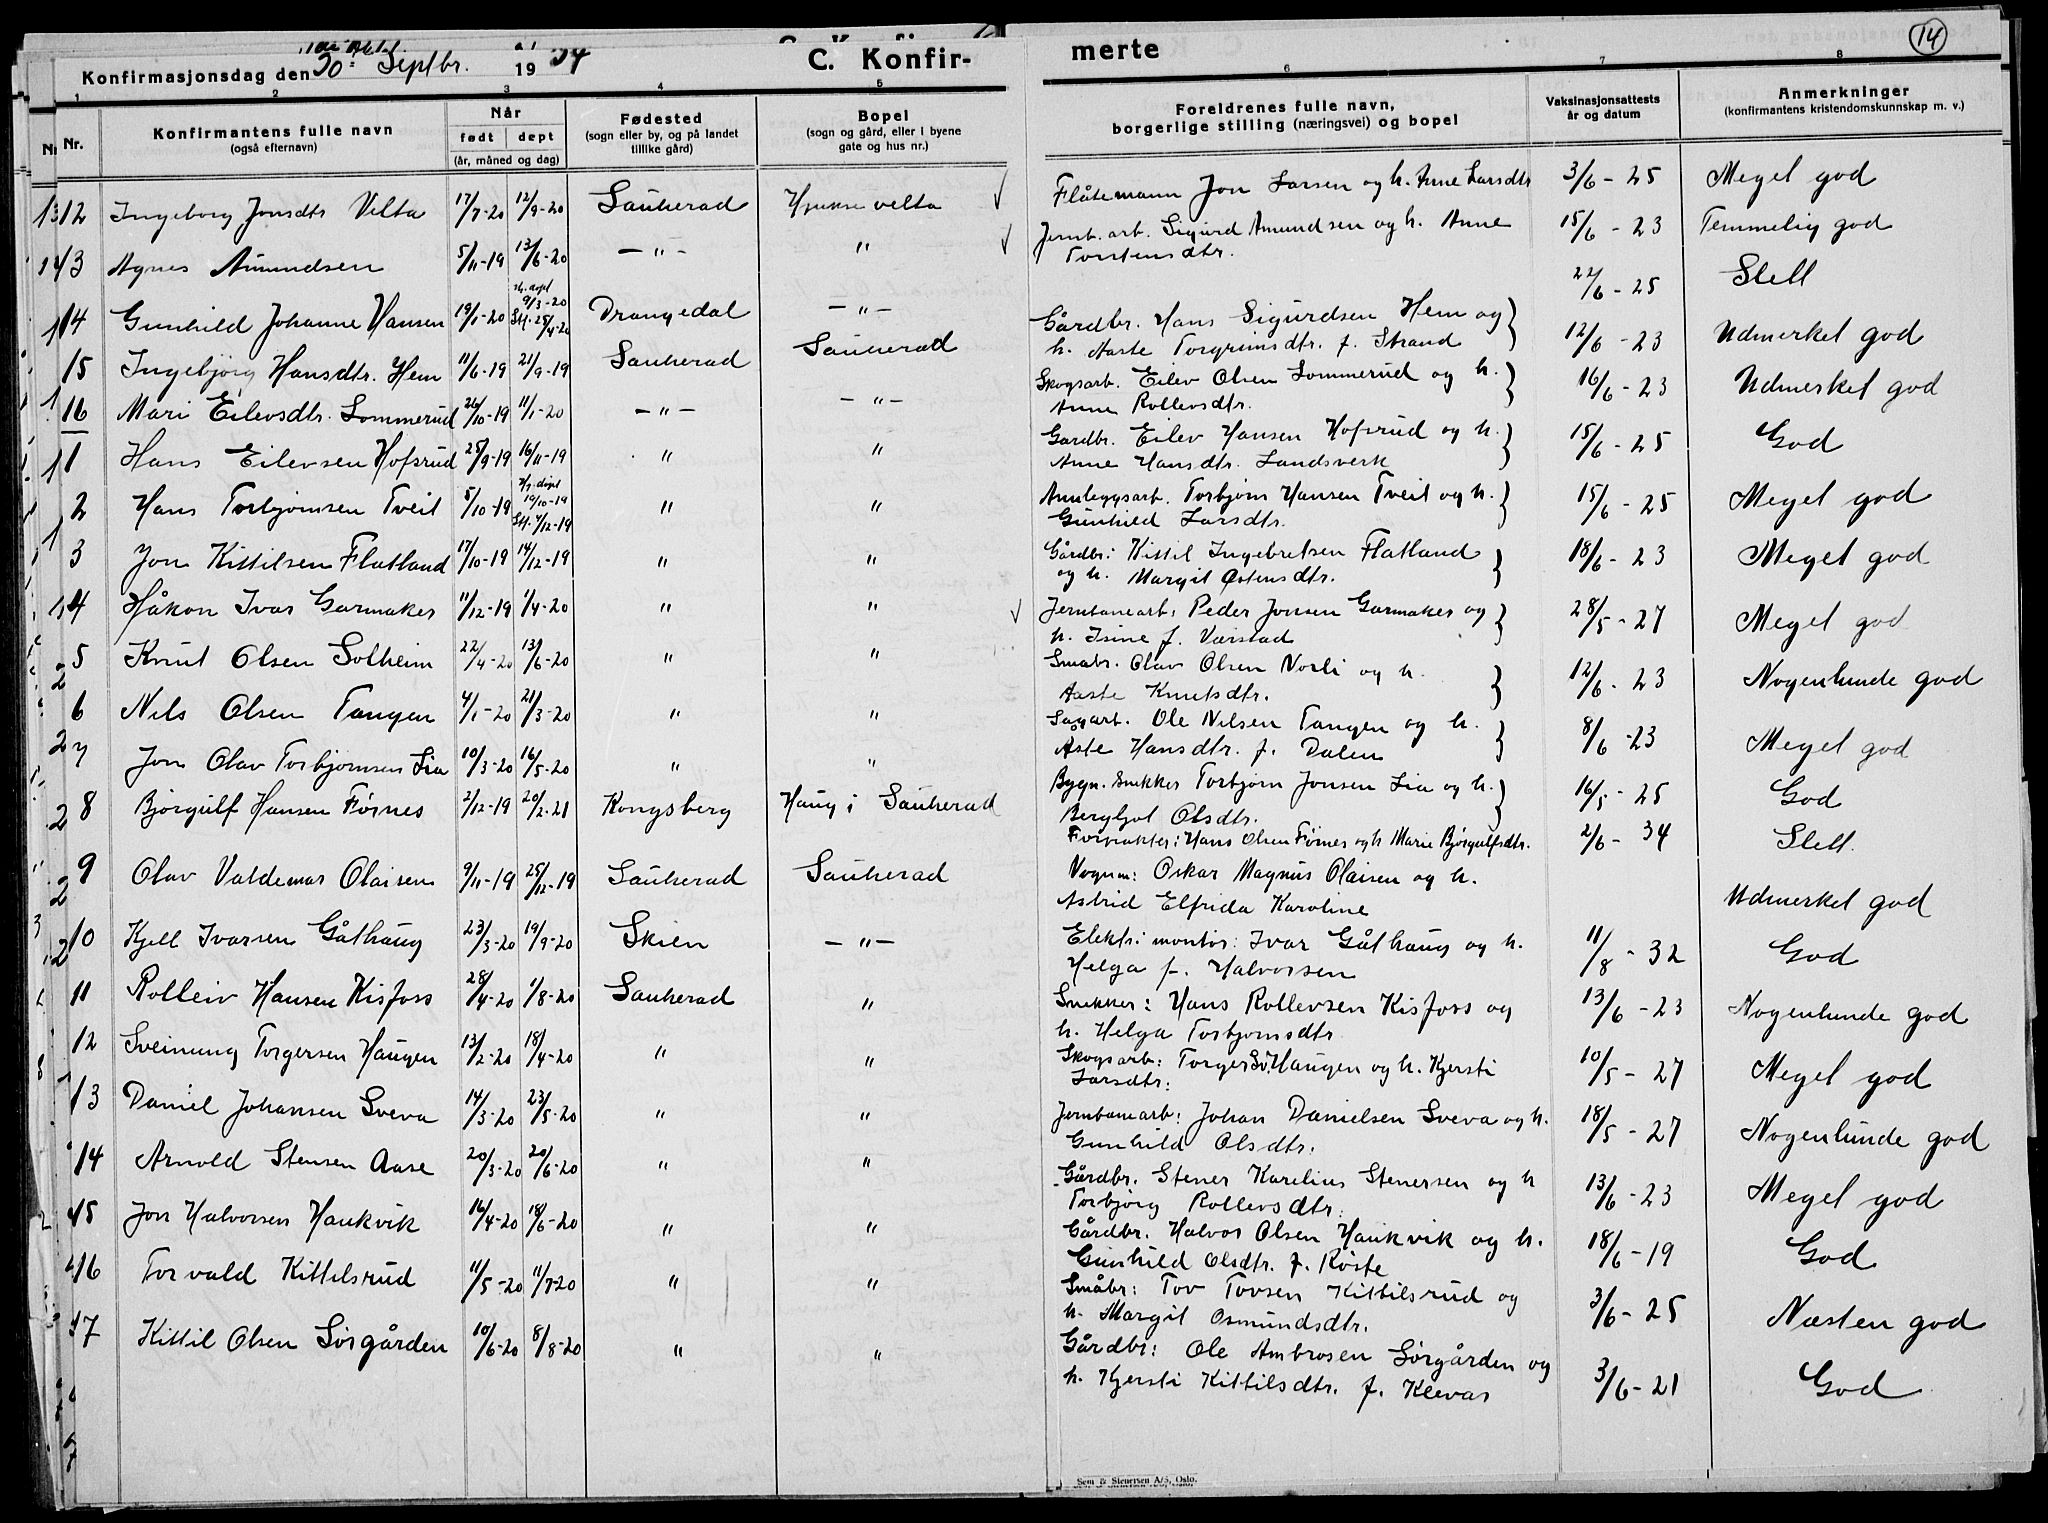 14
Konfirmasjonsdag den 30te Septbr. 1934 C. Konfirmerte
1 2 3 4 5 6 7 8
Nr. Konfirmantens fulle navn (også efternavn) Når født dept (år, måned og dag) Fødested (sogn eller by, og på landet tillike gård) Bopel (sogn og gård, eller i byene gate og hus nr.) Foreldrenes fulle navn, borgerlige stilling (næringsvei) og bopel Vaksinasjonsattests år og datum Anmerkninger (konfirmantens kristendomskunnskap m. v.)
12 Ingeborg Jonsdtr Velta 17/7-20 12/9-20 Sauherad Hjuksevelta Flåtemann Jon Larsen og h. Anne Larsdtr 3/6-25 Meget god
13 Agnes Amundsen 5/11-19 13/6-20 -"- " Jernb. arb. Sigurd Amundsen og h. Anne Torstensdtr. 15/6-23 Temmelig god
14 Gunhild Johanne Hansen 19/1-20 9/3-20 St. 25/4-20 Drangedal -"- 22/6-25 Slett
15 Ingebjørg Hansdtr. Hem 11/6-19 21/9-19 Sauherad Sauherad Gårdbr. Hans Sigurdsen Hem og h. Aaste Torgrimsdtr. f. Strand 12/6-23 Udmerket god
16 Mari Eilevsdtr. Sommerud 26/10-19 11/1-20 -"- -"- Skogsarb. Eilev Olsen Sommerud og h. Anne Rollevsdtr. 16/6-23 Udmerket god
1 Hans Eilevsen Hofsrud 25/9-19 16/11-19 " " Gardbr. Eilev Hansen Hofsrud og h. Anne Hansdtr. Landsverk 15/6-25 God
2 Hans Torbjørnsen Tveit 5/10-19 Hj. døpt 19/10-19 St. 7/12-19 " " Anleggsarb. Torbjørn Hansen Tveit og h. Gunhild Larsdtr. 15/6-25 Meget god
3 Jon Kittilsen Flatland 17/10-19 14/12-19 " " Gårdbr: Kittil Ingebretsen Flatland og h. Margit Østensdtr. 18/6-23 Meget god
4 Håkon Ivar Garmaker 11/12-19 1/4-20 " " Jernbanearb: Peder Jonsen Garmaker og h. Isine f. Værstad 28/5-27 Meget god
5 Knut Olsen Solheim 22/4-20 13/6-20 " " Småbr. Olav Olsen Norli og h. Aaste Knutsdtr. 12/6-23 Nogenlunde god
6 Nils Olsen Tangen 4/1-20 21/3-20 " " Sagarb. Ole Nilsen Tangen og h. Åste Hansdtr. f. Dalen 8/6-23 Meget god
7 Jon Olav Torbjørnsen Lia 10/3-20 16/5-20 " " Bygn. Snekker Torbjørn Jonsen Lia og h. Bergljot Olsdtr. 16/5-25 God
8 Bjørgulf HansenFørnes 2/12-19 20/2-21 Kongsberg Haug i Sauherad Forpakter: Hans Olsen Førnes og h Marie Bjørgulfsdtr. 2/6-34 Slett.
9 Olav Valdemar Olaisen 9/11-19 25/12-19 Sauherad Sauherad Vognm: Oskar Magnus Olaisen og h. Astrid Elfrida Karoline Udmerket god
10 Kjell Ivarsen Gåthaug 23/3-20 19/9-20 Skien -"- Elektr: montør: Ivar Gåthaug og h. Helga f. Halvorsen 11/8-32 God
11 Rolleiv Hansen Kisfoss 28/4-20 1/8-20 Sauherad " Snekker: Hans Rollevsen Kisfoss og h. Helga Torbjørnsdtr 13/6-23 Nogenlunde god
12 Sveinung Torgersen Haugen 13/2-20 18/4-20 " " Skogsarb: Torger Sv. Haugen og h. Kjersti Larsdtr: 10/5-27 Meget god
13 Daniel Johansen Sveva 14/3-20 23/5-20 " " Jernbanearb: Johan Danielsen Sveva og h. Gunhild Olsdtr. 18/5-27 Nogenlunde god
14 Arnold Stensen Aase 20/3-20 20/6-20 " " Gårdbr. Stener Karelius Stenersen og h Torbjørg Rollevsdtr: 13/6-23 Meget god
15 Jon Halvorsen Haukvik 16/4-20 18/6-20 " " Gårdbr. Halvor Olsen Haukvik og h. Gunhild Olsdtr. f. Røste 18/6-19 God
16 Torvald Kittilsrud 11/5-20 11/7-20 " " Småbr: Tov Tovsen Kittilsrud og h. Margit Osmundsdtr. 3/6-25 Næsten god
17 Kittil Olsen Sørgården 10/6-20 8/8-20 " " Gårdbr: Ole Ambrosen Sørgården og h. Kjersti Kittilsdtr. f. Klevar 3/6-21 God
Sem & Stenersen A/S, Oslo.